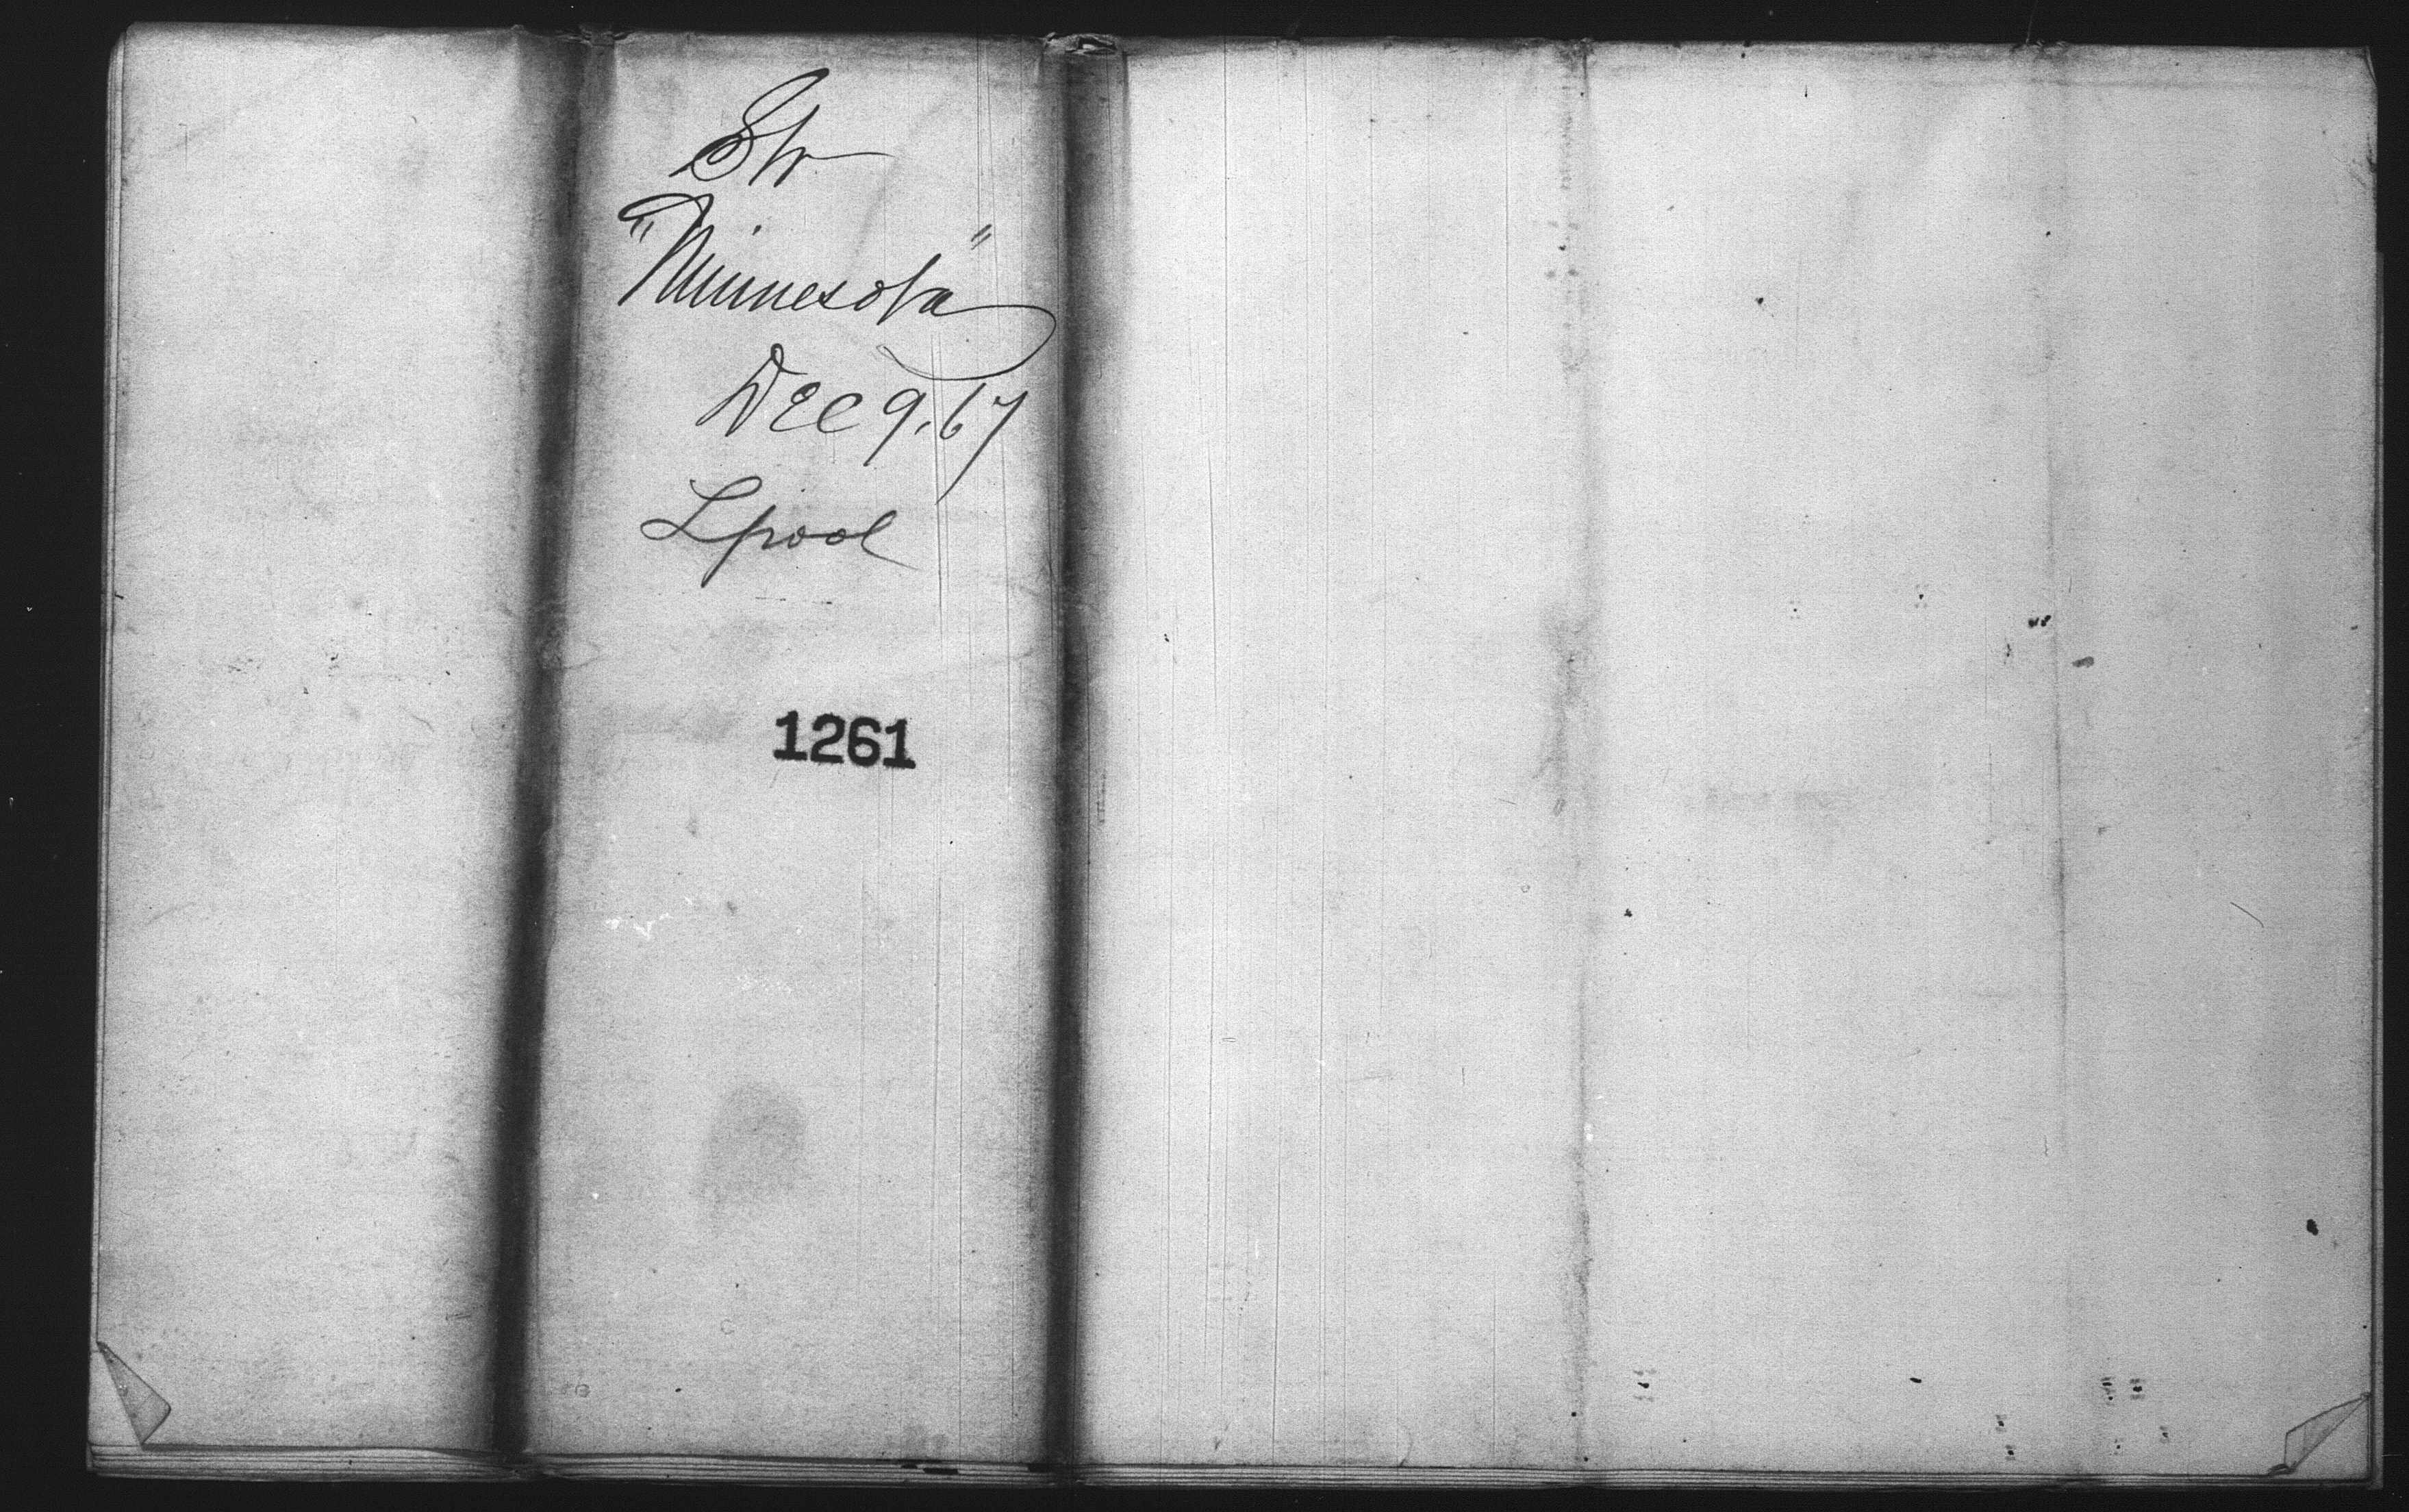 Str
"Minnesota"
Dec 9. 67
Lpool
1261